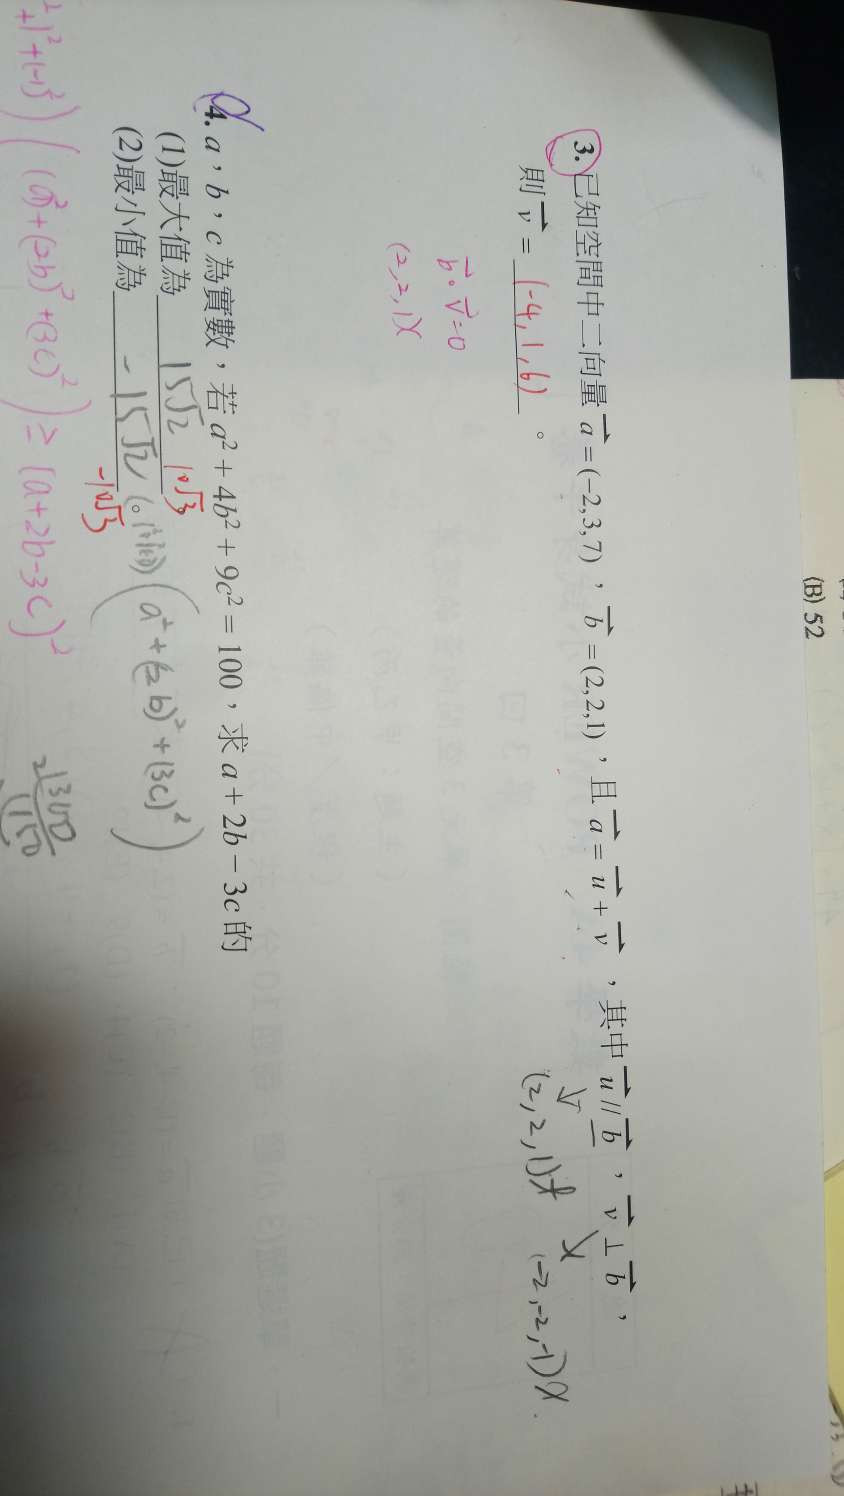 (B) 52
3. 已知空間中二向量 a⃗ = (−2,3,7)，b⃗ = (2,2,1)，且 a⃗ = u⃗ + v⃗，其中 u⃗ // b⃗，v⃗ ⊥ b⃗，
則 v⃗ = (-4, 1, 6)。
(2,2,1)t
(-2,-2,-1)
b⃗·v⃗=0
(2,2,1)(
4. a，b，c 為實數，若 a² + 4b² + 9c² = 100，求 a + 2b − 3c 的
(1)最大值為 15√2 10√3
(2)最小值為 -15√2 -10√3
(a²+(2b)²+(3c)²)
+1²+(-1)²)((a)²+(2b)²+(3c)²) ≥ (a+2b-3c)²
2 300
150